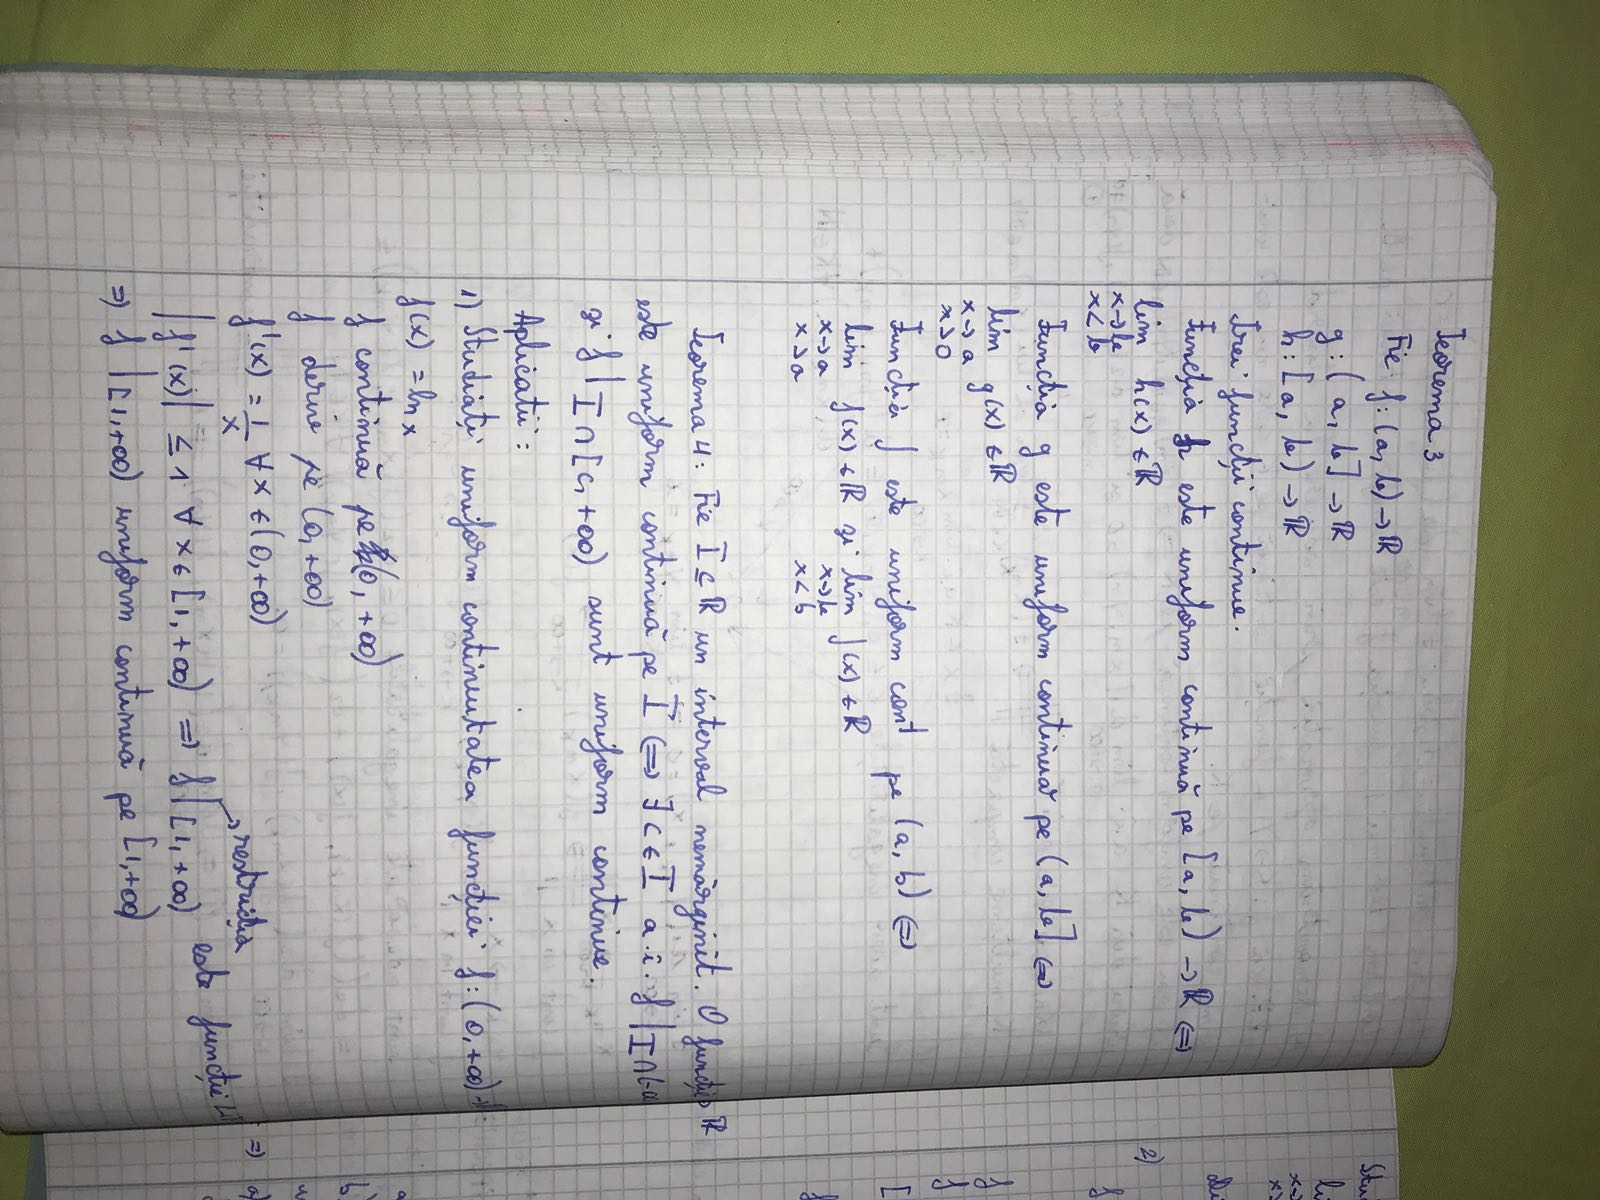 Teorema 3
Fie f: (a, b) → ℝ
g: (a, b] → ℝ
h: [a, b) → ℝ
Trei funcții continue.
Funcția h este uniform continuă pe [a, b) → ℝ (=)
lim h(x) ∈ ℝ
x→b
x<b
Funcția g este uniform continuă pe (a, b] (=)
lim g(x) ∈ ℝ
x→a
x>0
Funcția f este uniform cont pe (a, b) (=)
lim f(x) ∈ ℝ și lim f(x) ∈ ℝ
x→a x→b
x>a x<b
Teorema 4: Fie I ⊆ ℝ un interval nemărginit. O funcție
este uniform continuă pe I (=) ∃ c ∈ I a.î. f | I∩(-∞
și f | I ∩ [c, +∞) sunt uniform continue.
Aplicații:
1) Studiați uniform continuitatea funcției f: (0, +∞) →
f(x) = ln x
f continuă pe (0, +∞)
f deriv pe (0, +∞)
f'(x) = 1/x ∀ x ∈ (0, +∞)
→ restricția
|f'(x)| ≤ 1 ∀ x ∈ [1, +∞) => f | [1, +∞) este funcție
=> f | [1, +∞) uniform continuă pe [1, +∞)
2)